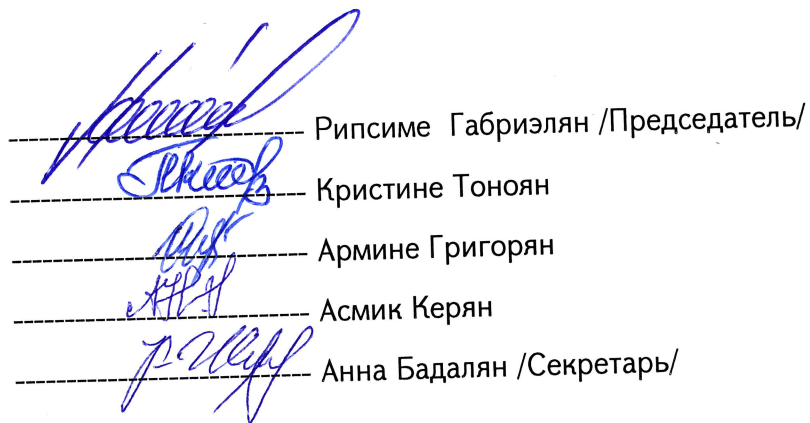 Рипсиме Габриэлян /Председатель/
Кристине Тоноян
Армине Григорян
Асмик Керян
Анна Бадалян /Секретарь/